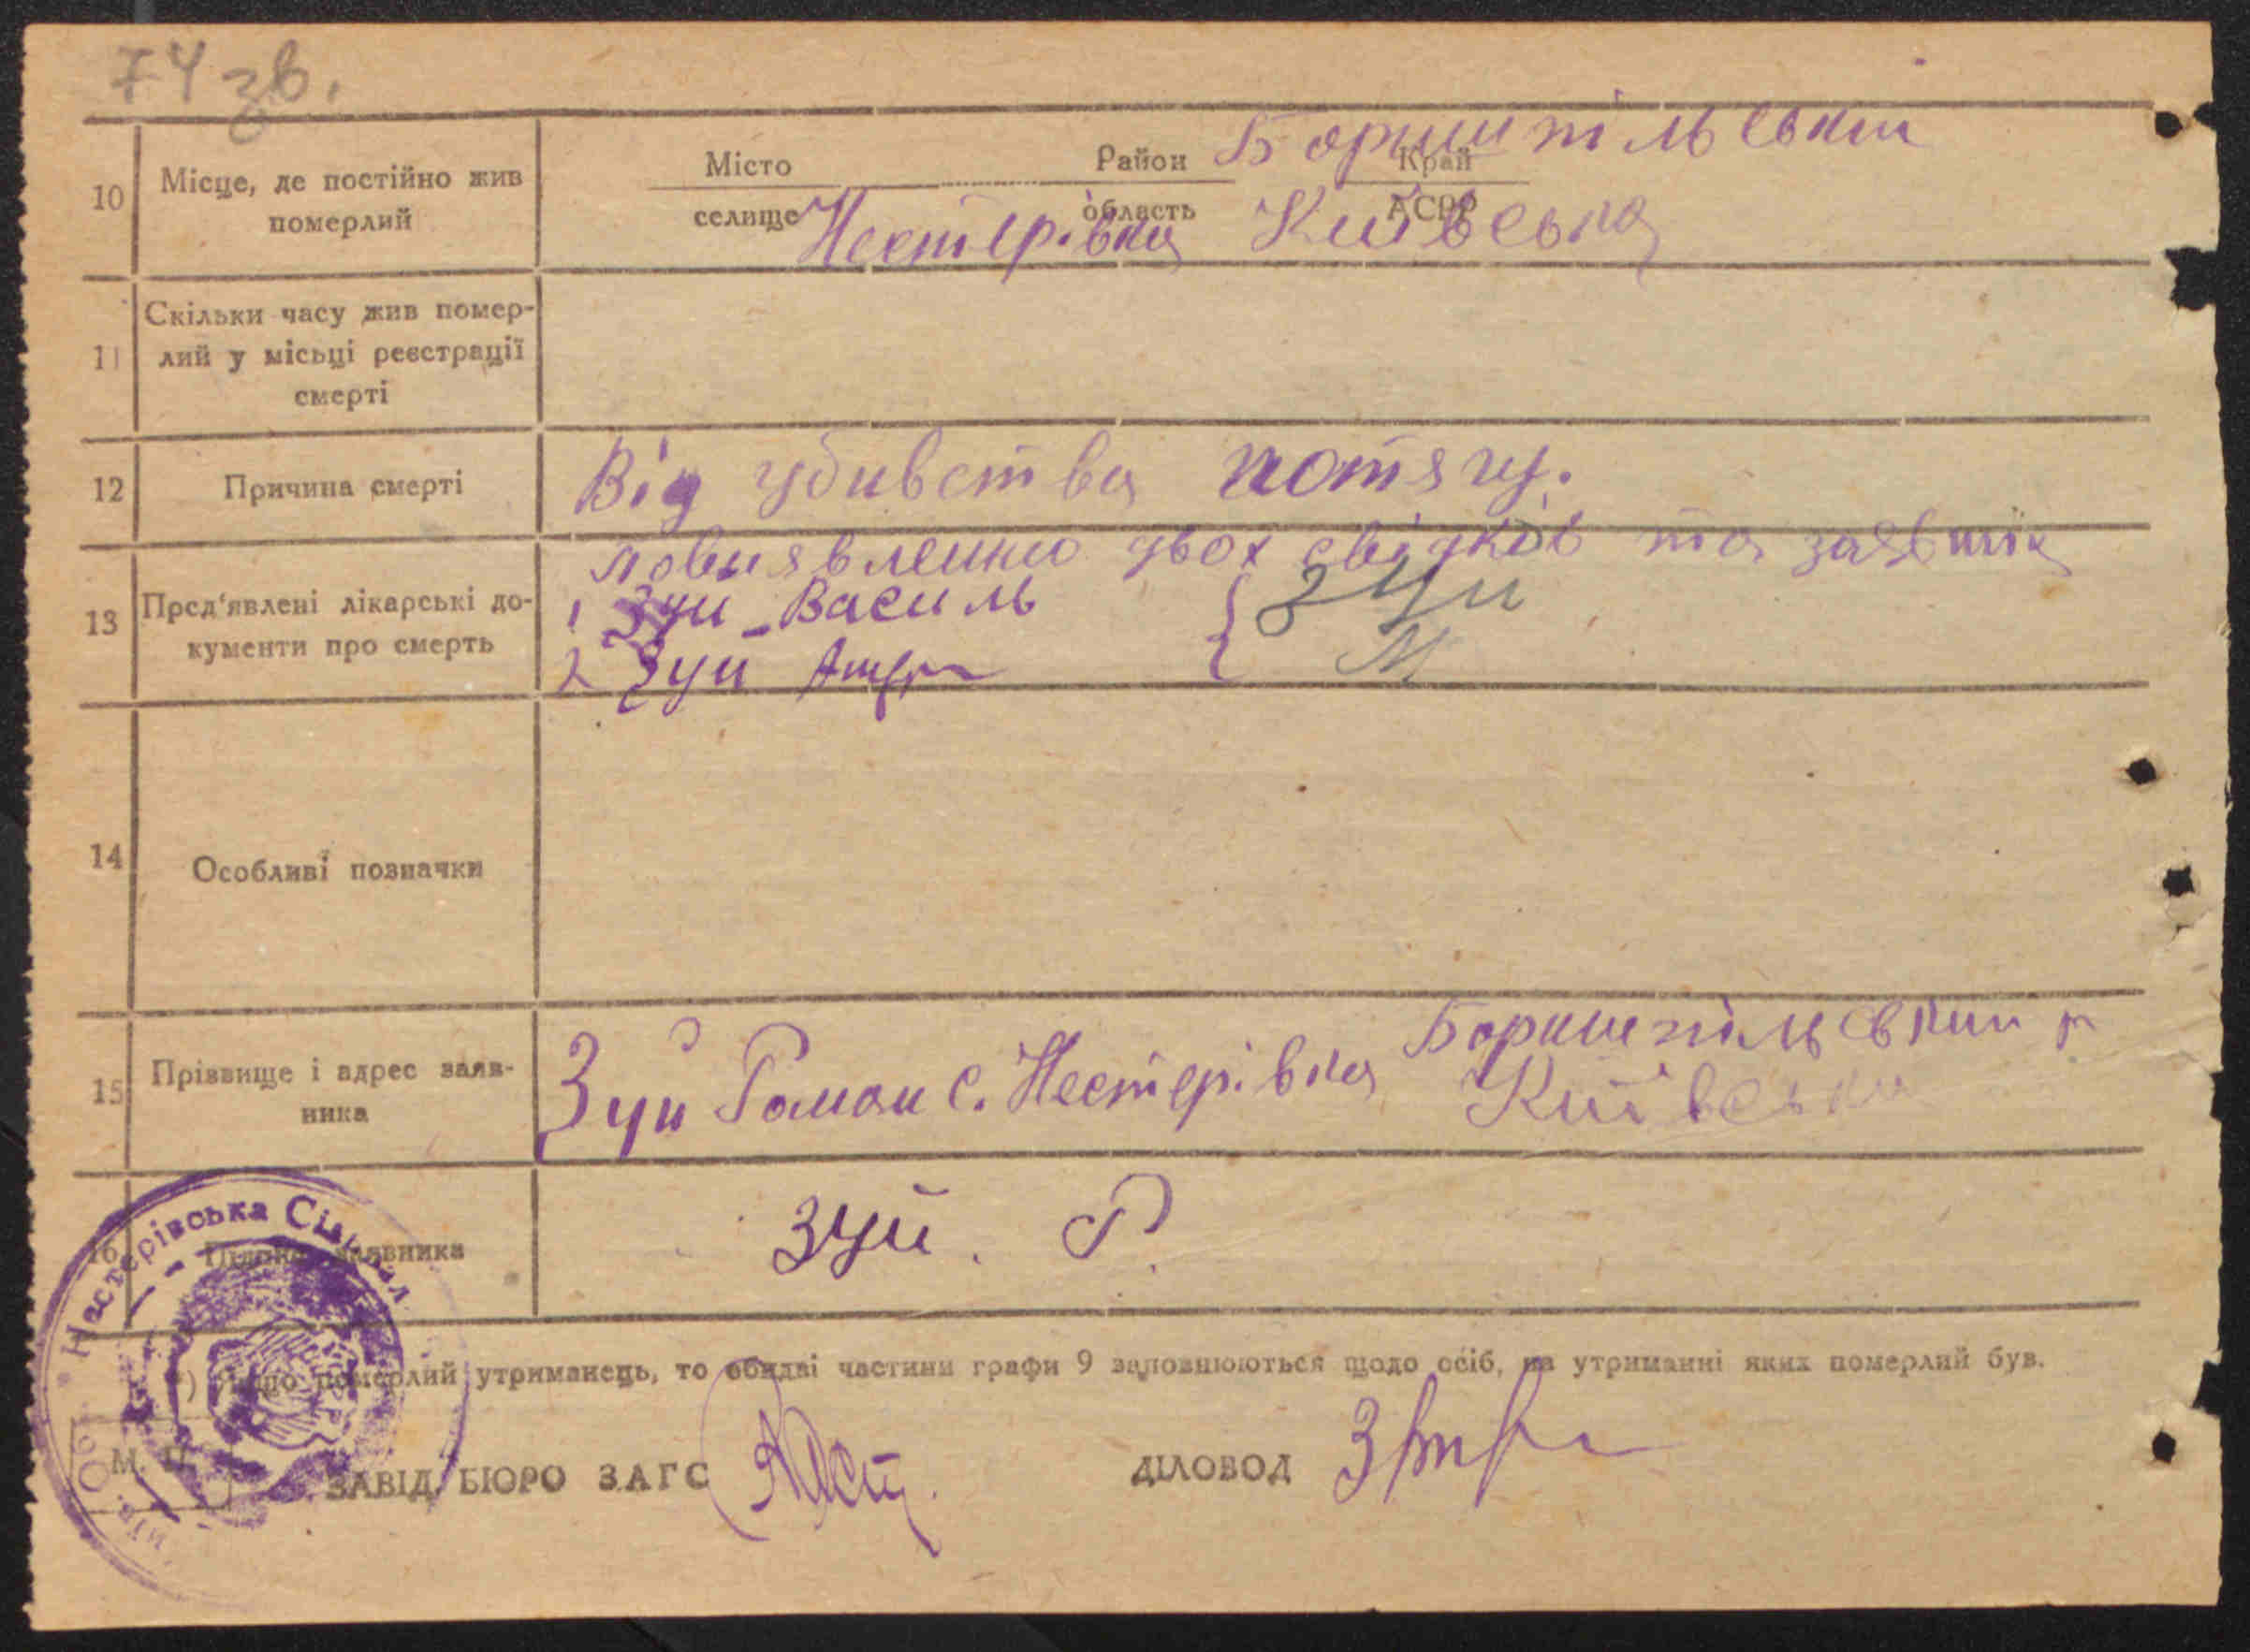 74 зв.
10 Місце, де постійно жив померлий
Місто Район Бориспільський Край
селище Нестерівка область Київська АСРР
11 Скільки часу жив помер-
лий у місьці реєстрації
смерті
12 Причина смерті Від убивства потягу.
13 Пред'явлені лікарські до-
кументи про смерть
повиявленню двох свідків та заявник
1 Зуй - Василь { Зуй
2 Зуй М
14 Особливі позначки
15 Прізвище і адрес заяв-
ника
Зуй Роман с. Нестерівка Бориспільский р
Київська
16 Підпис заявника Зуй. Р.
Нестерівська
*) Якщо померлий утриманець, то обидві частини графи 9 заповнюються щодо осіб, на утриманні яких померлий був.
М. П.
ЗАВІД. БЮРО ЗАГС ДІЛОВОД